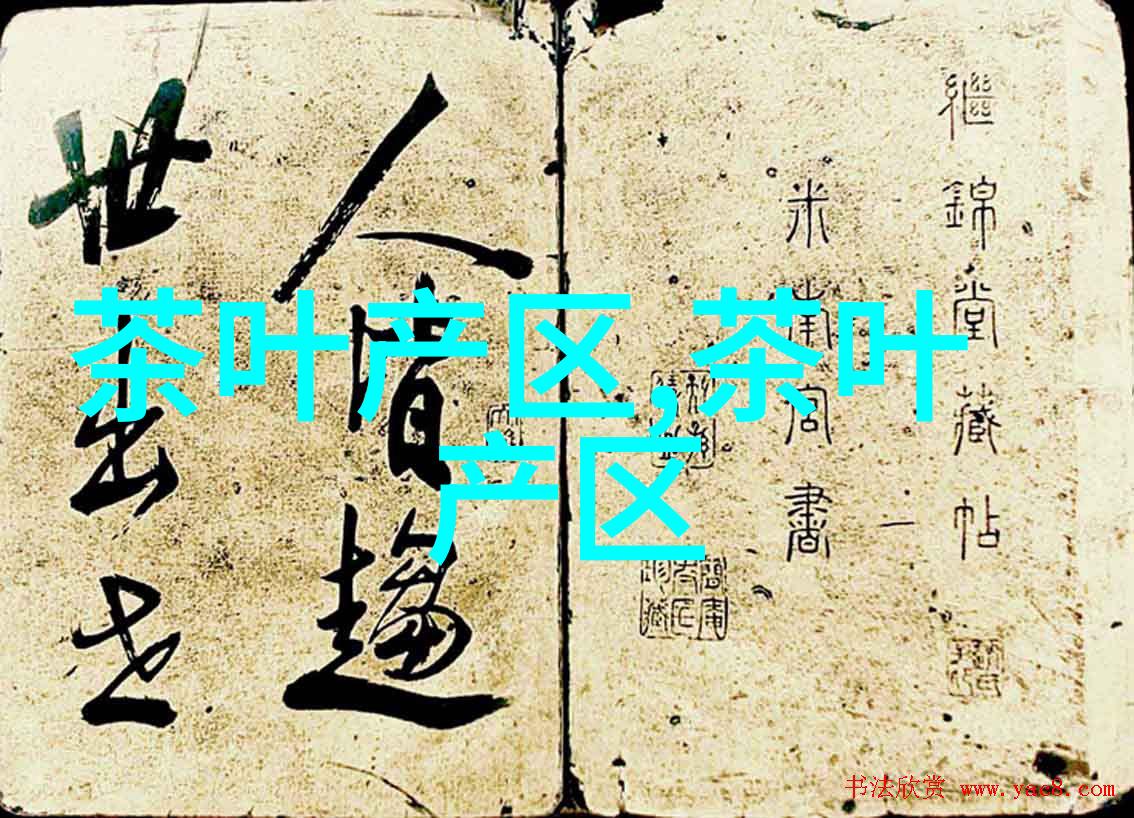 茶叶产区,茶叶
产区
繼錦堂藏帖
米南宮書
一
人情趨
世出世
书法欣赏 www.yac8.com